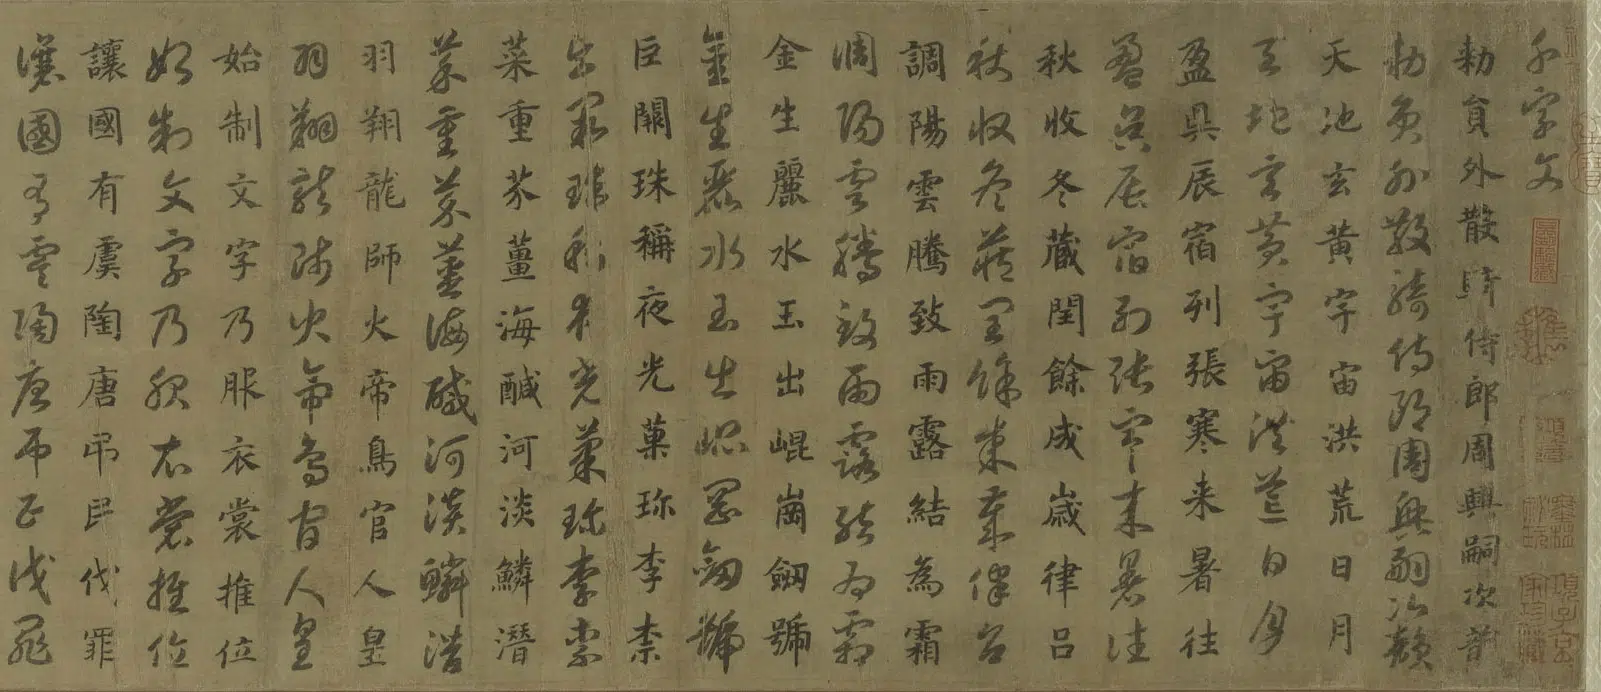 千字文
勅員外散騎侍郎周興嗣次韻
勅員外散騎侍郎周興嗣次韻
天地玄黃宇宙洪荒日月
天地玄黃宇宙洪荒日月
盈昃辰宿列張寒来暑往
盈昃辰宿列張寒来暑往
秋收冬蔵閏餘成歲律吕
秋收冬蔵閏餘成歲律吕
調陽雲騰致雨露結為霜
調陽雲騰致雨露結為霜
金生麗水玉出崐崗劒號
金生麗水玉出崐崗劒號
巨闕珠稱夜光菓珎李柰
巨闕珠稱夜光菓珎李柰
菜重芥薑海醎河淡鱗潛
菜重芥薑海醎河淡鱗潛
羽翔龍師火帝鳥官人皇
羽翔龍師火帝鳥官人皇
始制文字乃服衣裳推位
始制文字乃服衣裳推位
讓國有虞陶唐弔民伐罪
讓國有虞陶唐弔民伐罪